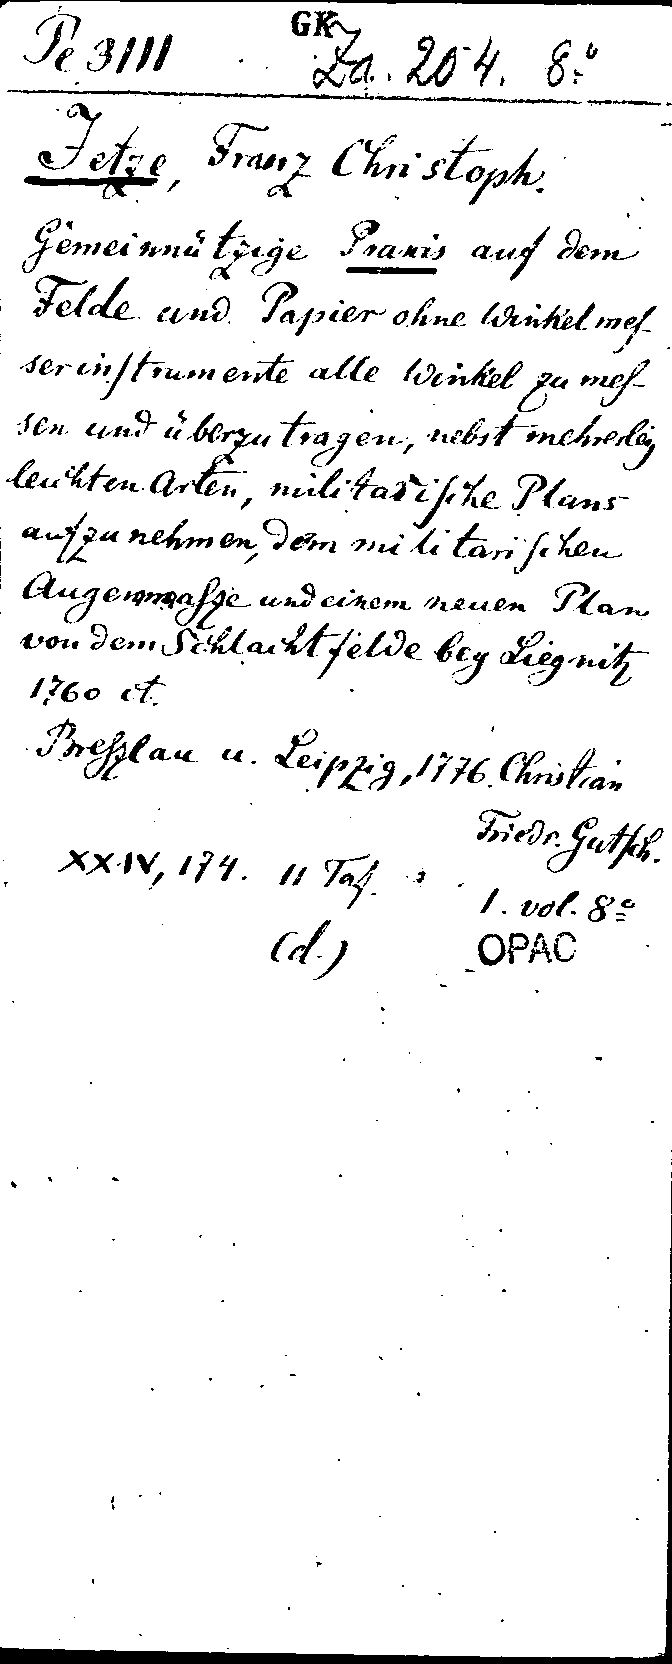 Pe 3111 GK Za. 204. 8.º
Jetze, Franz Christoph.
Gemeinnützige Praxis auf dem
Felde und Papier ohne Winkelmeſ-
serinſtrumente alle Winkel zu meſ-
sen und überzutragen, nebst mehrerley
leichten Arten, militariſche Plans
aufzunehmen, dem militariſchen
Augenmaſze und einem neuen Plan
von dem Schlachtfelde bey Liegnitz
1760 et.
Breſzlau u. Leipzig, 1776. Christian
Friedr. Gutſch.
XXIV, 174. 11 Taf.
1. vol. 8º
(d.) OPAC